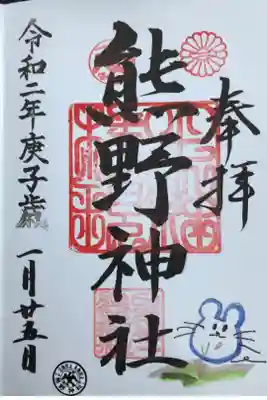 奉拝
熊野神社
令和二年庚子歳
一月廿五日